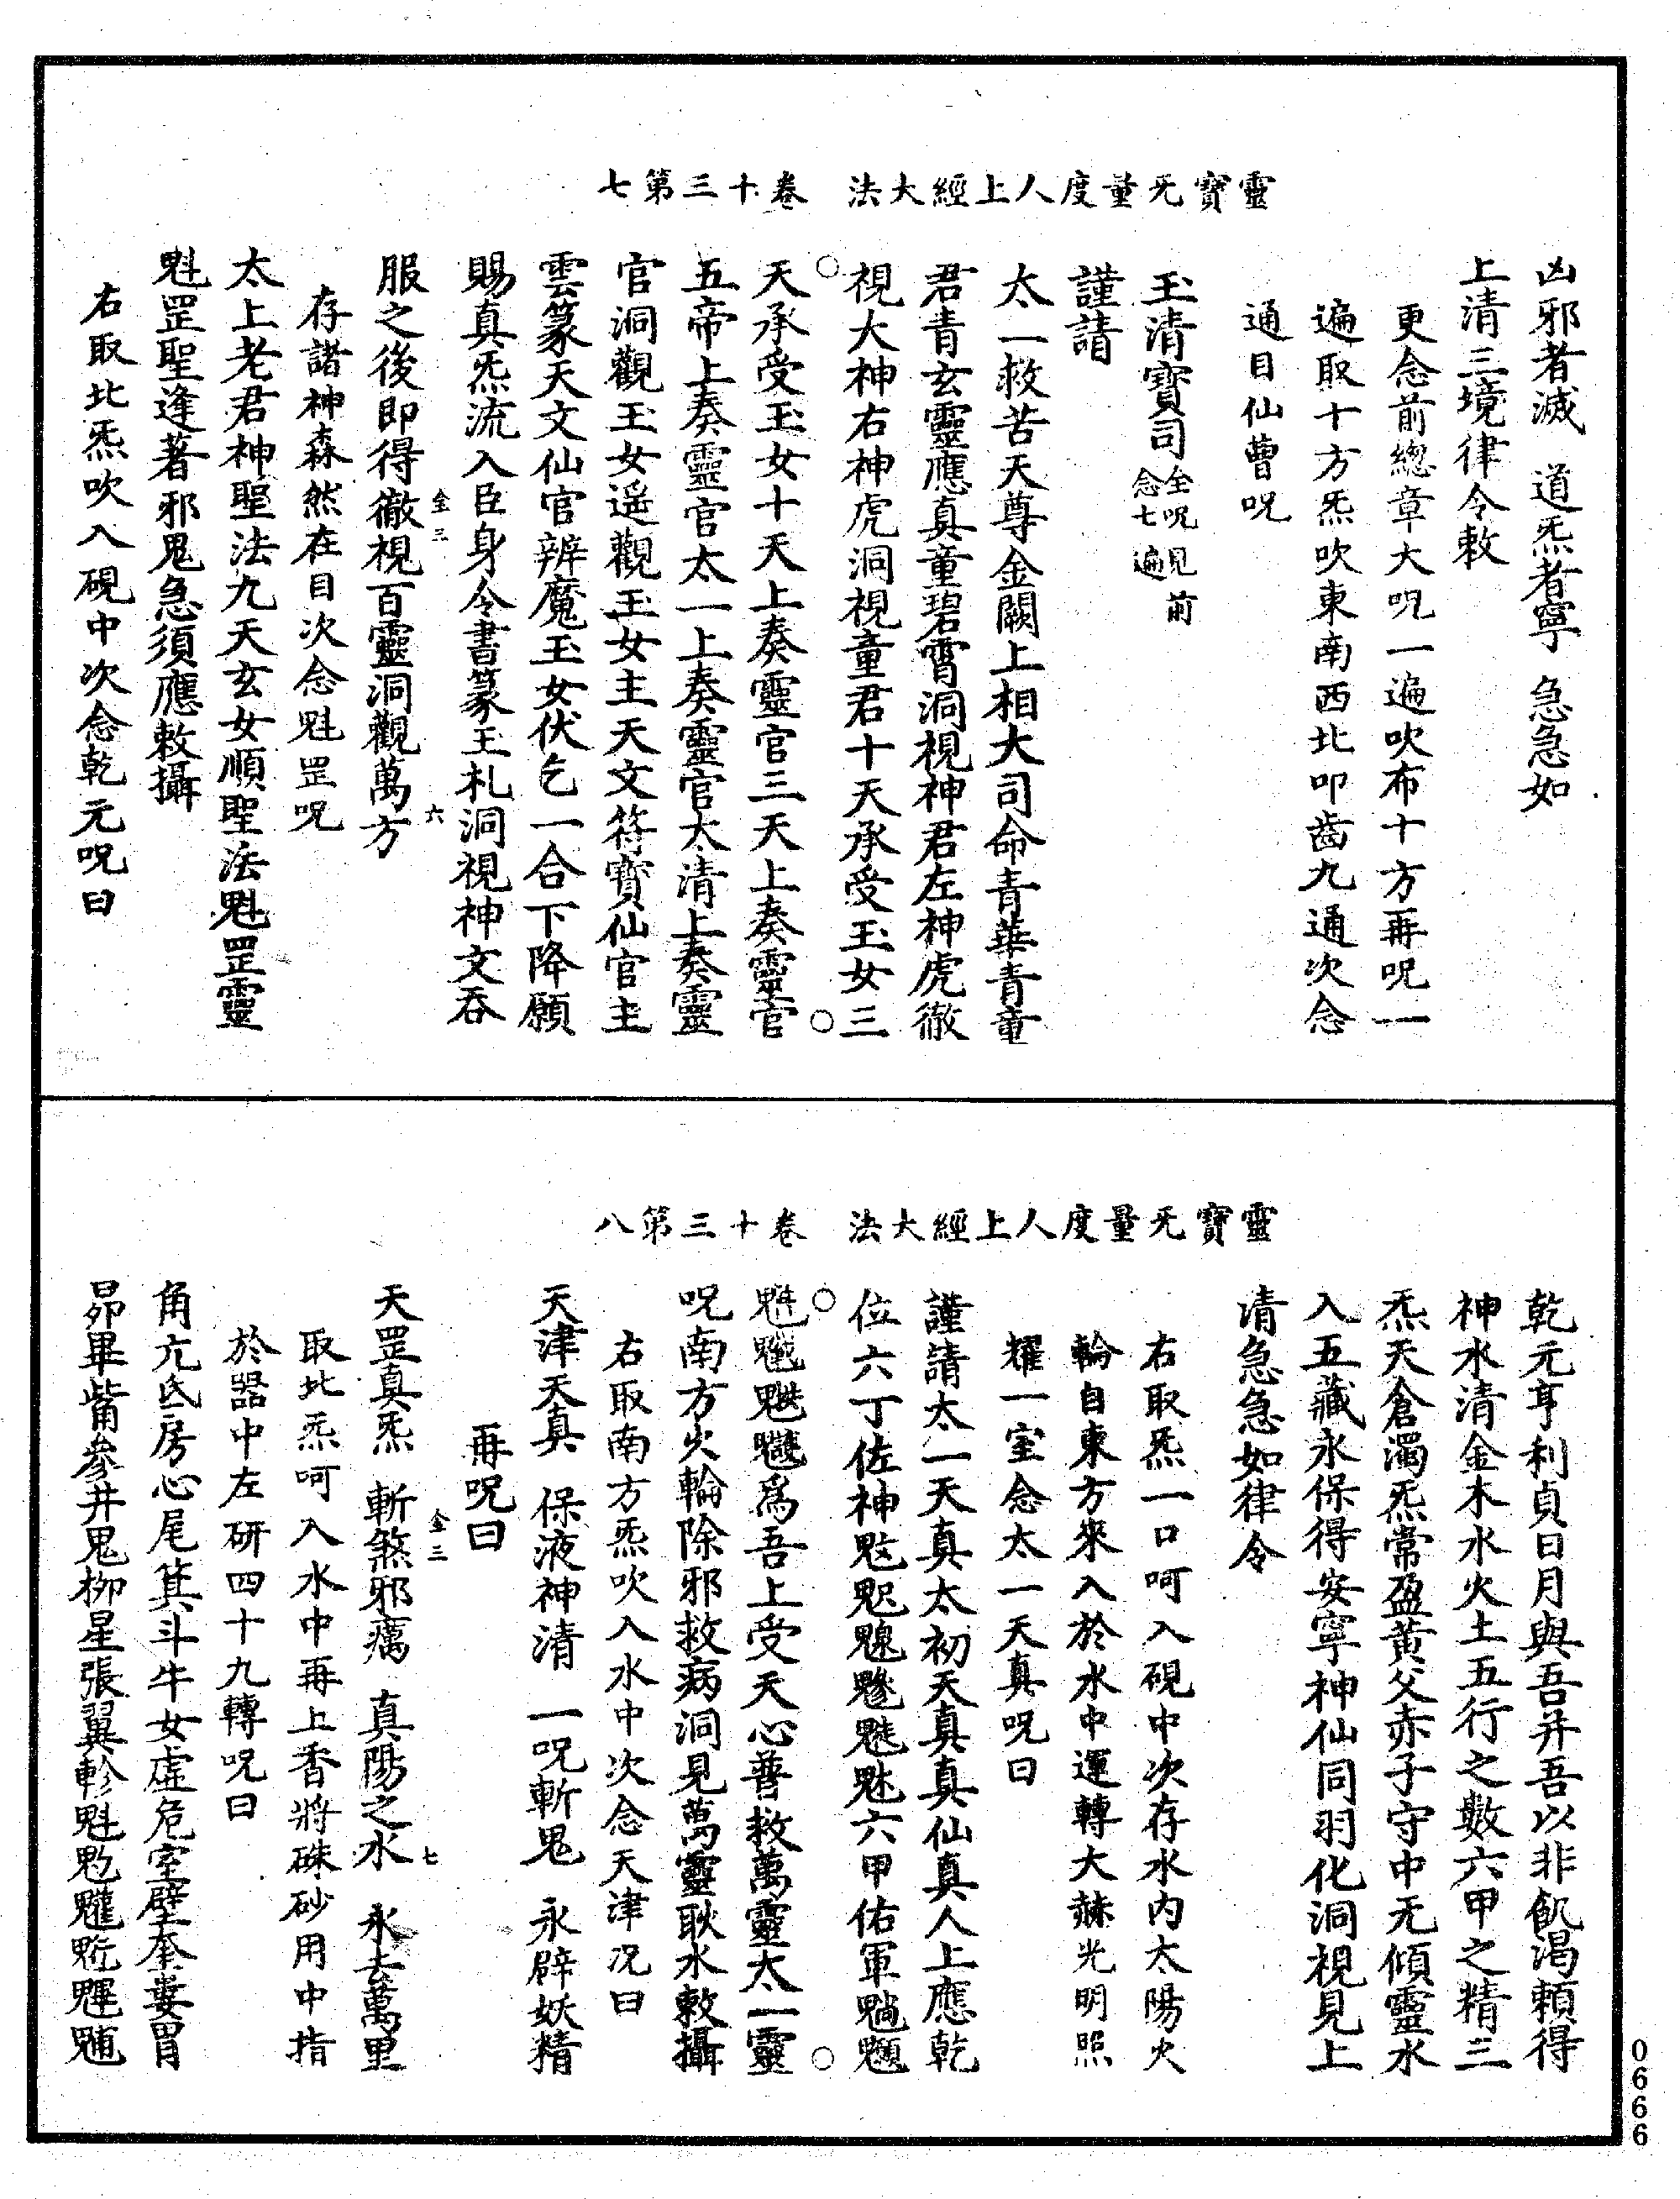 靈寶无量度人上經大法　卷十三第七
凶邪者滅　道炁者寧　急急如
上清三境律令敕
更念前總章大呪一遍吹布十方再呪一
遍取十方炁吹東南西北叩齒九通次念
通目仙曹呪
玉清寶司全呪見前念七遍
謹請
太一救苦天尊金闕上相大司命青華青童
君青玄靈應真童碧霄洞視神君左神虎徹
視大神右神虎洞視童君十天承受玉女三
天承受玉女十天上奏靈官三天上奏靈官
五帝上奏靈官太一上奏靈官太清上奏靈
官洞觀玉女遥觀玉女主天文符寶仙官主
雲篆天文仙官辨魔玉女伏乞一合下降願
賜真炁流入臣身令書篆玉札洞視神文吞
服之後即得徹視百靈洞觀萬方
存諸神森然在目次念魁罡呪
太上老君神聖法九天玄女順聖法魁罡靈
魁罡聖逢著邪鬼急須應敕攝
右取北炁吹入硯中次念乾元呪曰
靈寶无量度人上經大法　卷十三第八
乾元亨利貞日月與吾并吾以非飢渴賴得
神水清金木水火土五行之數六甲之精三
炁天倉濁炁常盈黄父赤子守中无傾靈水
入五藏永保得安寧神仙同羽化洞視見上
清急急如律令
右取炁一口呵入硯中次存水内太陽火
輪自東方來入於水中運轉大赫光明照
耀一室念太一天真呪曰
謹請太一天真太初天真真仙真人上應乾
位六丁佐神六甲佑軍
為吾上受天心普救萬靈太一靈
呪南方火輪除邪救病洞見萬靈耿水敕攝
右取南方炁吹入水中次念天津呪曰
天津天真　保液神清　一呪斬鬼　永辟妖精
再呪曰
天罡真炁　斬煞邪癘　真陽之水　永去萬里
取北炁呵入水中再上香將硃砂用中指
於器中左研四十九轉呪曰
角亢氐房心尾箕斗牛女虛危室壁奎婁胃
昴畢觜參井鬼柳星張翼軫魁
0666